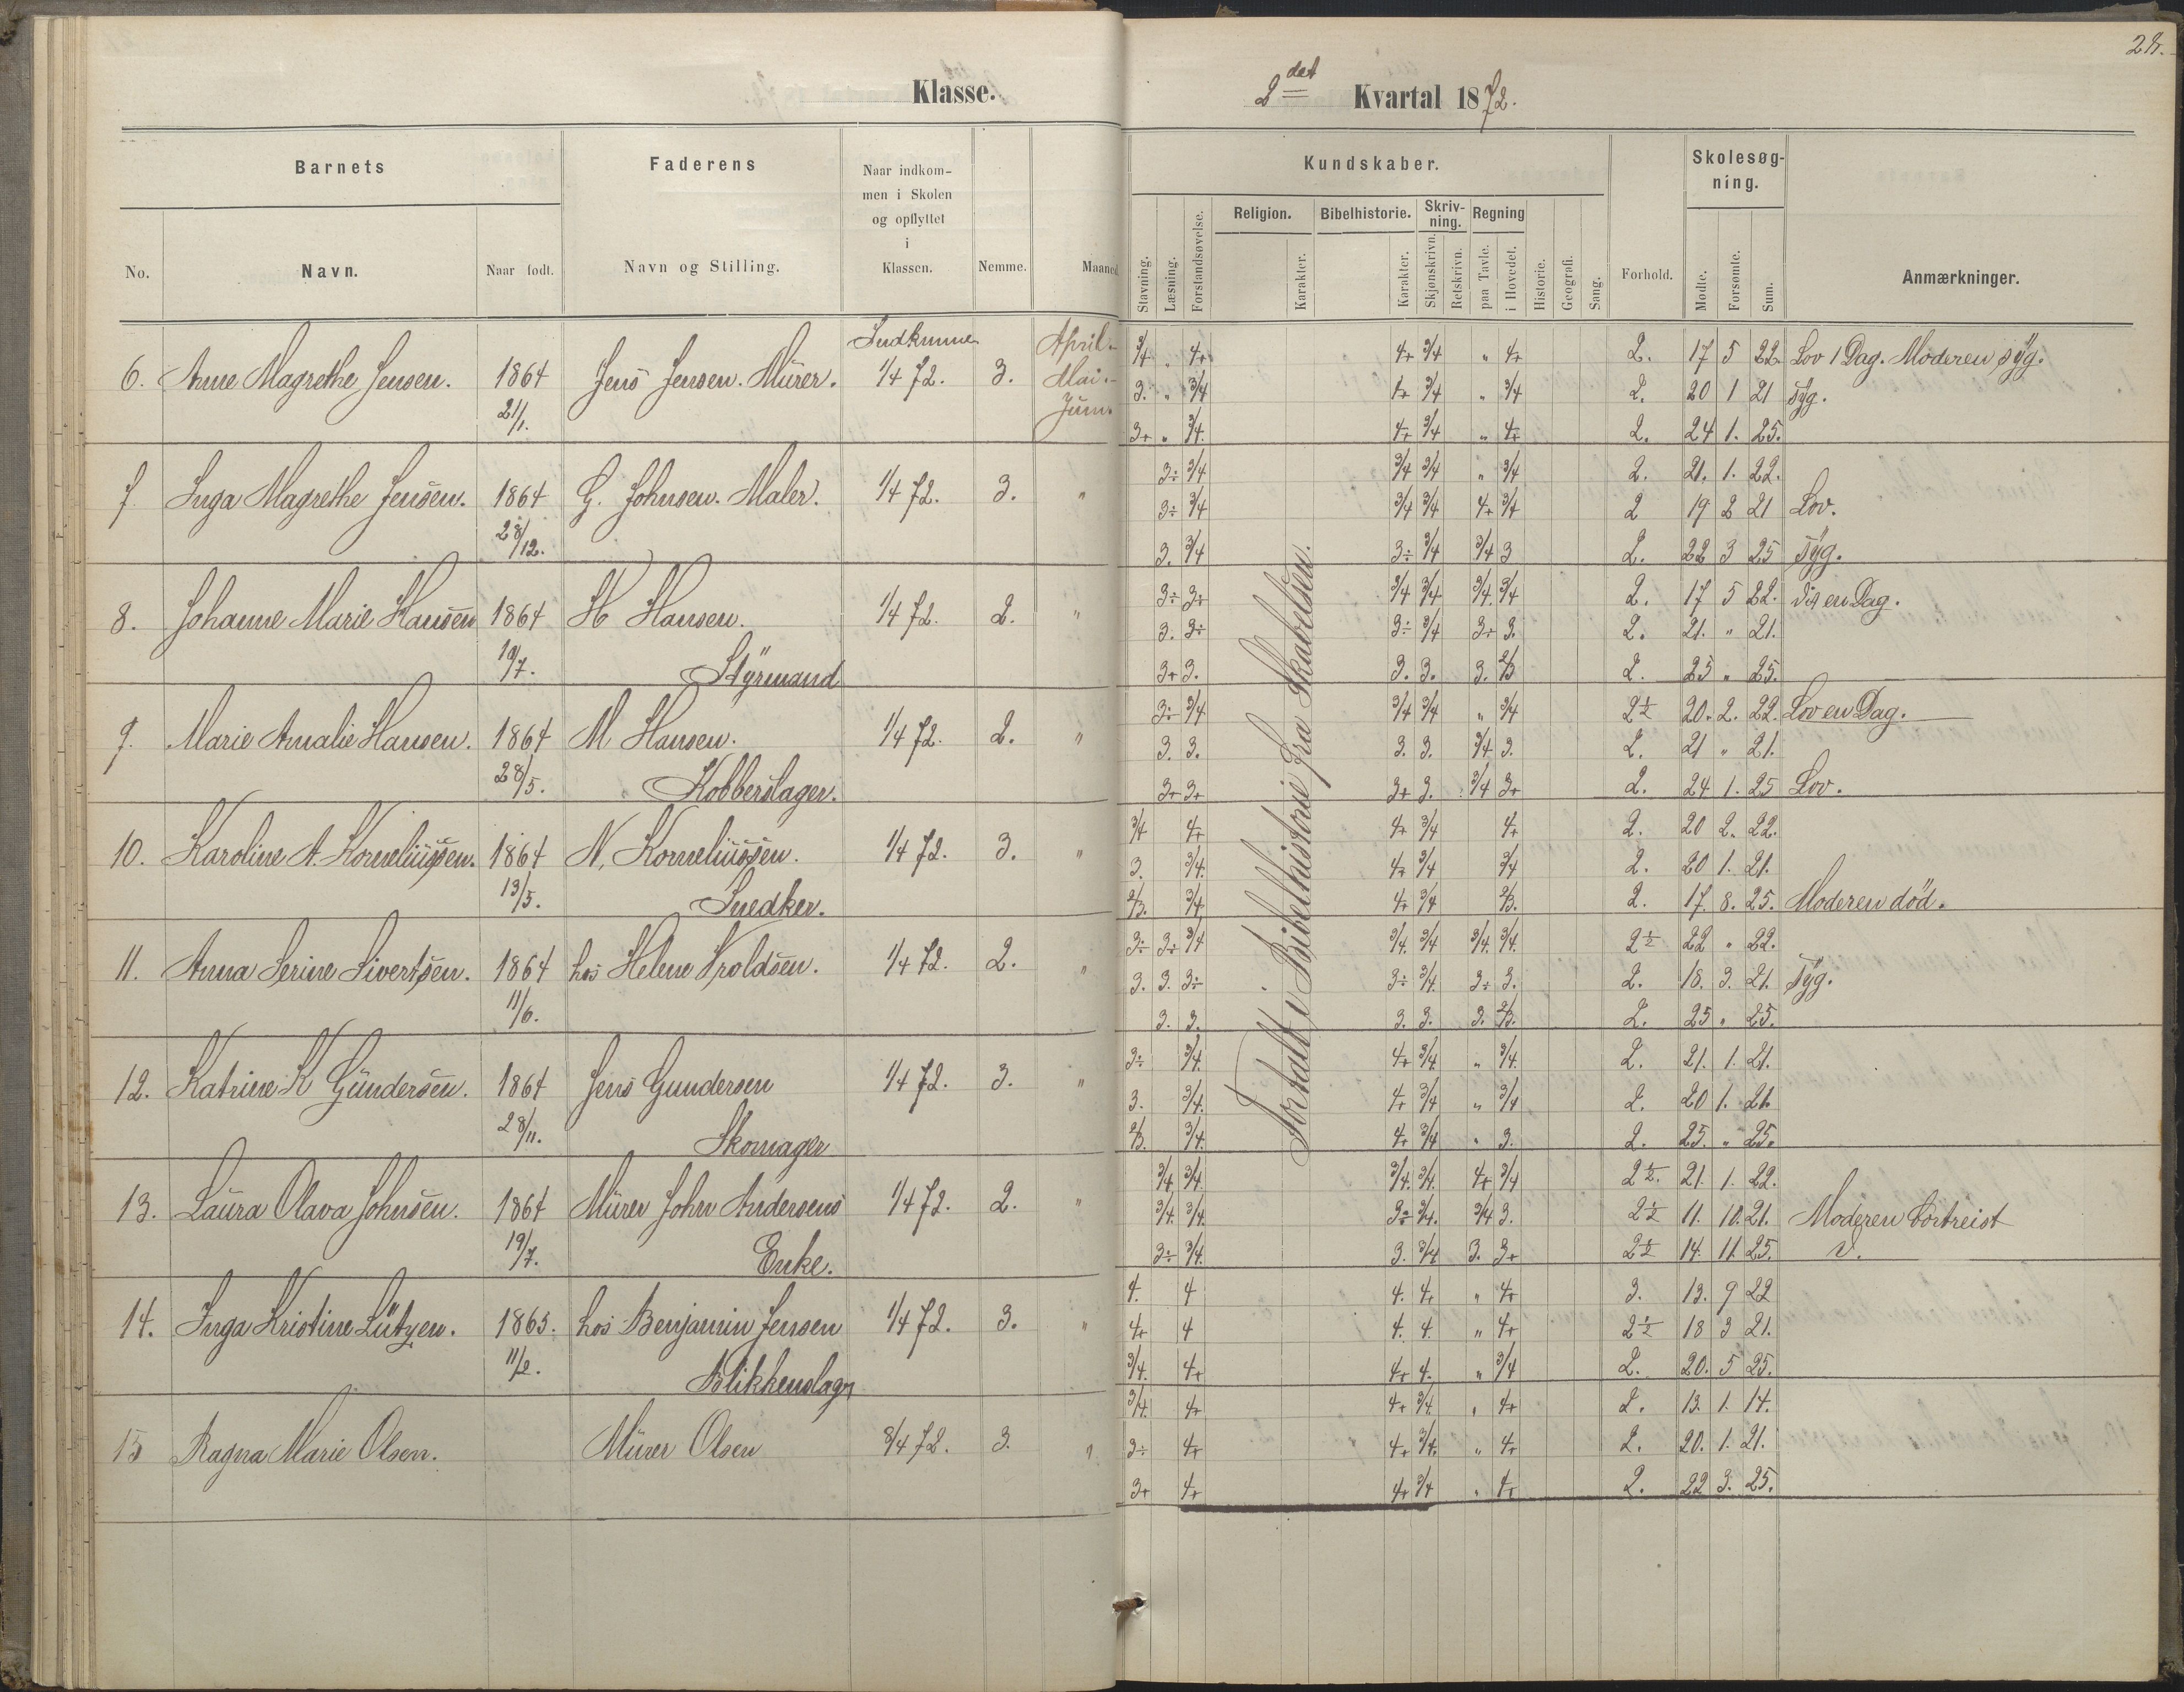 28.
Klasse.
2det Kvartal 1872.
Barnets
Faderens
Naar indkommen i Skolen og opflyttet i Klassen.
Nemme.
Maaned
No.
Navn.
Naar født.
Navn og Stilling.
Kundskaber.
Stavning.
Læsning.
Forstandsøvelse.
Religion.
Karakter.
Bibelhistorie.
Karakter.
Skrivning.
Skjønskrivn.
Retskrivn.
Regning
paa Tavle.
i Hovedet.
Historie.
Geografi.
Sang.
Forhold.
Skolesøgning.
Mødte.
Forsømte.
Sum.
Anmærkninger.
Indkumne
6. Anne Magrethe Jensen. 1864 21/1. Jens Jensen. Mürer. 1/4 72. 3.
April. 3/4 " 4+ 4+ 3/4 " 4+ 2. 17 5 22 Lov 1 Dag. Moderen syg.
Mai. 3. " 3/4 4+ 3/4 " 3/4 2. 20 1 21 Syg.
Juni. 3+ " 3/4. 4+ 3/4 " 4+ 2. 24 1. 25.
7 Inga Magrethe Jensen. 1864 28/12. G. Johnsen. Maler. 1/4 72. 3. "
3÷ 3/4 3/4 3/4 " 3/4 2. 21. 1. 22.
3÷ 3/4 3/4 3/4 4+ 3/4 2 19 2 21 Lov.
3. 3/4 3÷ 3/4 3/4 3 2. 22 3 25 Syg.
8. Johanne Marie Hansen 1864 19/7. H Hansen. Styrmand 1/4 72. 2. "
3÷ 3÷ 3/4 3/4 3/4. 3/4 2. 17 5 22. Vis en Dag.
3. 3÷ 3÷ 3/4 3÷ 3. 2. 21. " 21.
3+ 3. 3. 3. 3. 2/3 2. 25 " 25.
9. Marie Amalie Hansen. 1864 28/5. M Hansen. Kobberslager. 1/4 72. 2. "
3÷ 3/4 3/4 3/4 " 3/4 2½ 20. 2. 22. Lov en Dag.
3. 3. 3. 3. 3/4 3. 2. 21 " 21.
3+ 3+ 3+ 3. 3/4 3+ 2. 24 1. 25 Lov.
10. Karoline A. Korneliussen. 1864 13/5. N. Korneliussen. Snedker. 1/4 72. 3. "
3/4 4+ 4+ 3/4 4+ 2. 20 2. 22.
3. 3/4. 4+ 3/4 3/4 2. 20 1. 21.
2/3. 3/4 4+ 3/4 2/3. 2. 17. 8. 25. Moderen død.
11. Anna Serine Sivertsen. 1864 11/6. hos Helene Troldsen. 1/4 72. 2. "
3÷ 3÷ 3/4 3/4. 3/4 3/4. 3/4. 2½ 22 " 22.
3. 3. 3÷ 3÷ 3/4. 3÷ 3. 2. 18. 3. 21. Syg.
3. 3. 3. 3. 3. 2/3. 2. 25 " 25.
12. Katrine K Gündersen. 1864 28/11. Jens Gundersen Skomager 1/4 72. 3. "
3÷ 3/4. 4+ 3/4 " 3/4. 2. 21. 1. 21.
3. 3/4. 4+ 3/4 " 3/4 2. 20 1. 21.
2/3. 3/4. 4+ 3/4 " 3. 2. 25. " 25.
13. Laura Olava Johnsen. 1864 19/7. Mürer John Andersens Enke. 1/4 72. 2. "
3/4 3/4. 3/4. 3/4. 4+ 3/4 2½. 21. 1. 22.
3/4. 3/4. 3÷ 3/4. 3/4 3. 2½ 11. 10. 21. Moderen bortreist
3÷ 3/4. 3. 3/4 3. 3+ 2½ 14. 11. 25.
14. Inga Kristine Lützen. 1865. 11/2. hos Benjamin Jensen Blikkenslagr 1/4 72. 3. "
4. 4 4. 4. " 4+ 3. 13. 9 22
4+ 4 4. 4. " 4+ 2½ 18 3 21.
3/4. 4+ 4+ 4. " 3/4 2. 20. 5 25.
15 Ragna Marie Olsen. Mürer Olsen 8/4 72. 3. "
3/4. 4+ 4+ 3/4. " 4+ 2. 13. 1. 14.
3÷ 4+ 4+ 3/4. " 4+ 2. 20. 1. 21.
3+ 4+ 4+ 3/4 " 4+ 2. 22 3. 25.
Fortalt i Bibelhistorie fra Skabelsen.